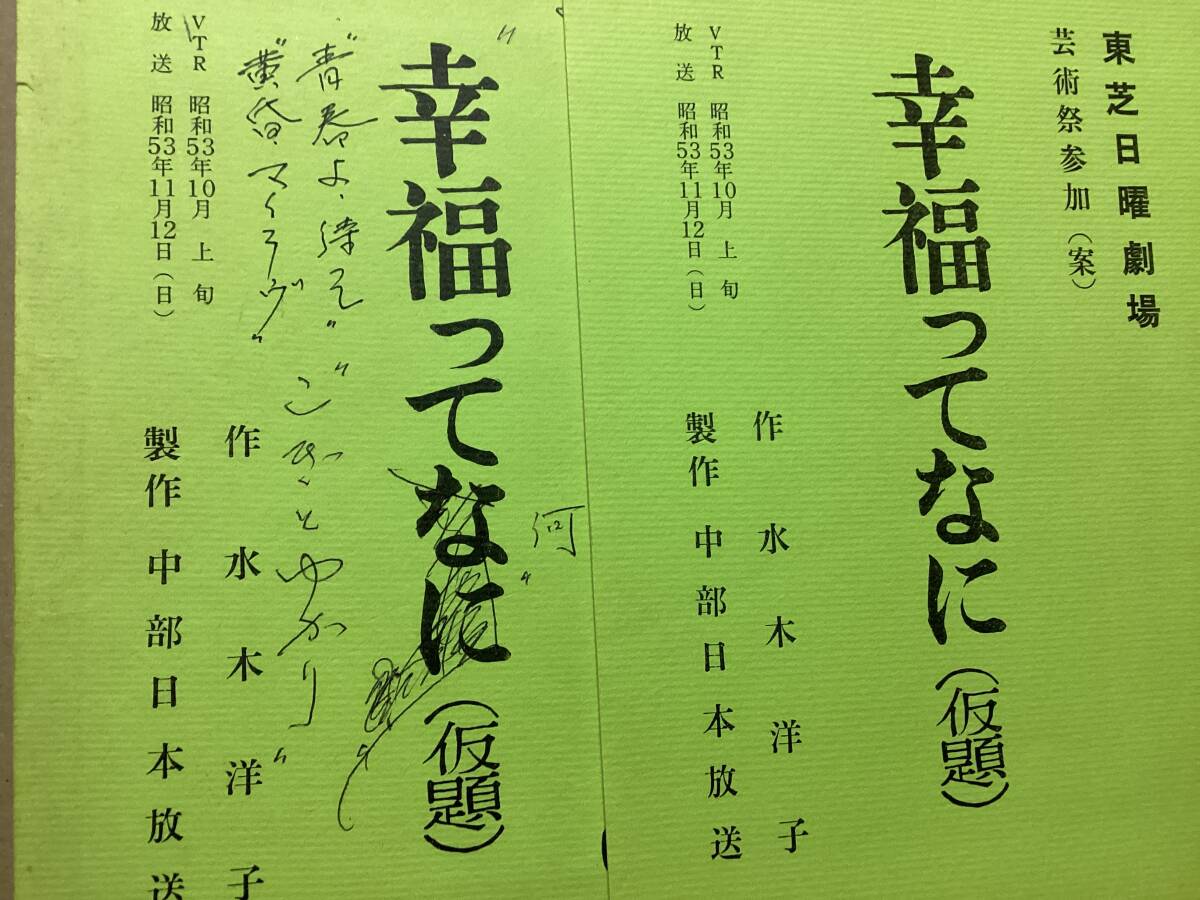 東芝日曜劇場
芸術祭参加（案）
幸福ってなに（仮題）
作 水木洋子
製作 中部日本放送
VTR 昭和53年10月 上旬
放送 昭和53年11月12日（日）
"幸福ってなに"（仮題）
何
"青春よ、待て"
"黄昏
作 水木洋子
製作 中部日本放送
VTR 昭和53年10月 上旬
放送 昭和53年11月12日（日）